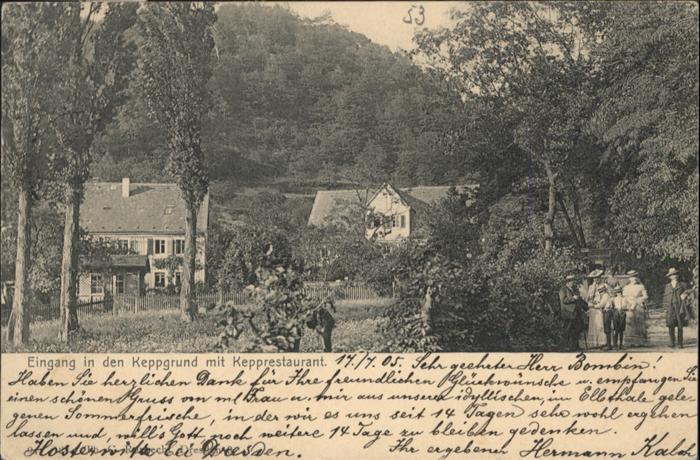 53
Eingang in den Keppgrund mit Kepprestaurant. 17./7. 05. Sehr geehrter Herr Bombin!
Haben Sie herzlichen Dank für Ihre freundlichen Glückwünsche u. empfangen Sie
einen schönen Gruss von m. Frau u. mir aus unserer idyllischen, im Elbthale gele-
genen Sommerfrische, in der wir es uns seit 14 Tagen sehr wohl ergehen
lassen und, will's Gott noch weitere 14 Tage zu bleiben gedenken.
Hosterwitz b. Dresden. Ihr ergebener Hermann